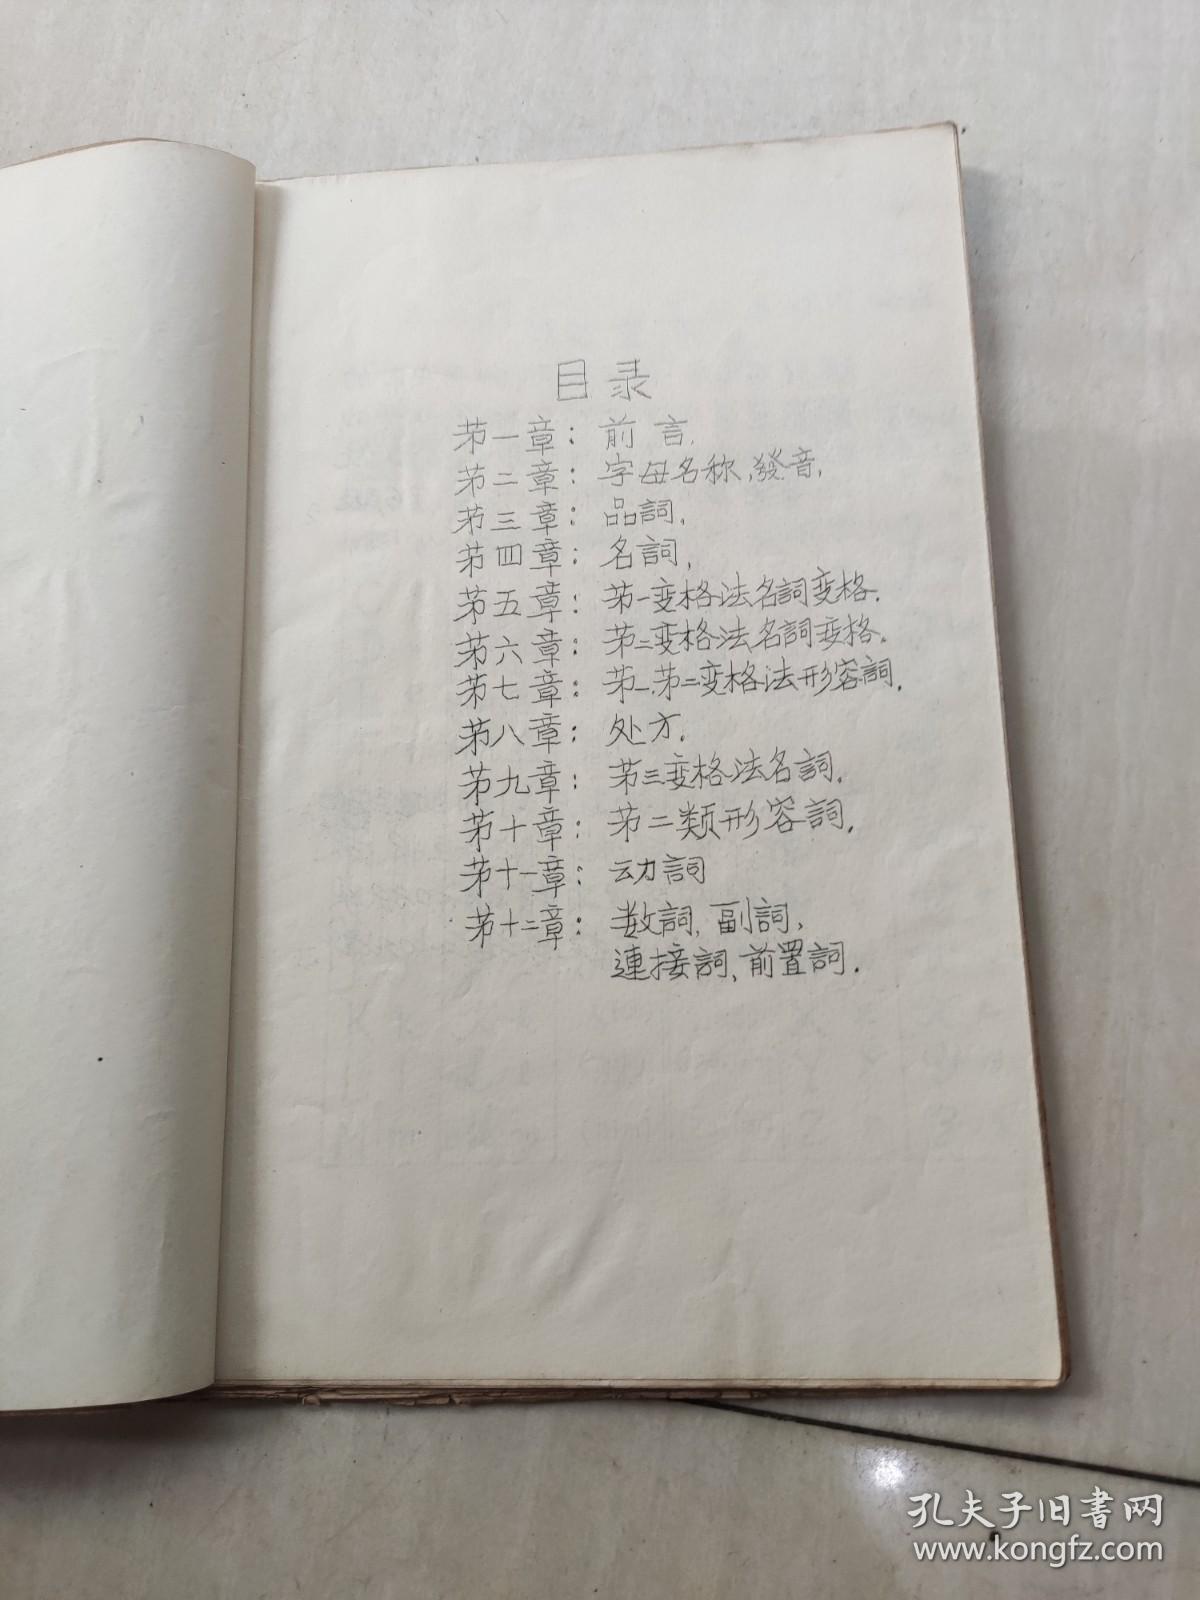 目录
第一章：前言.
第二章：字母名称,發音.
第三章：品詞.
第四章：名詞,
第五章：第一变格法名詞变格.
第六章：第二变格法名詞变格.
第七章：第一.第二变格法形容詞.
第八章：处方.
第九章：第三变格法名詞.
第十章：第二类形容詞.
第十一章：动詞
第十二章：数詞,副詞,
連接詞,前置詞.
孔夫子旧書网
www.kongfz.com